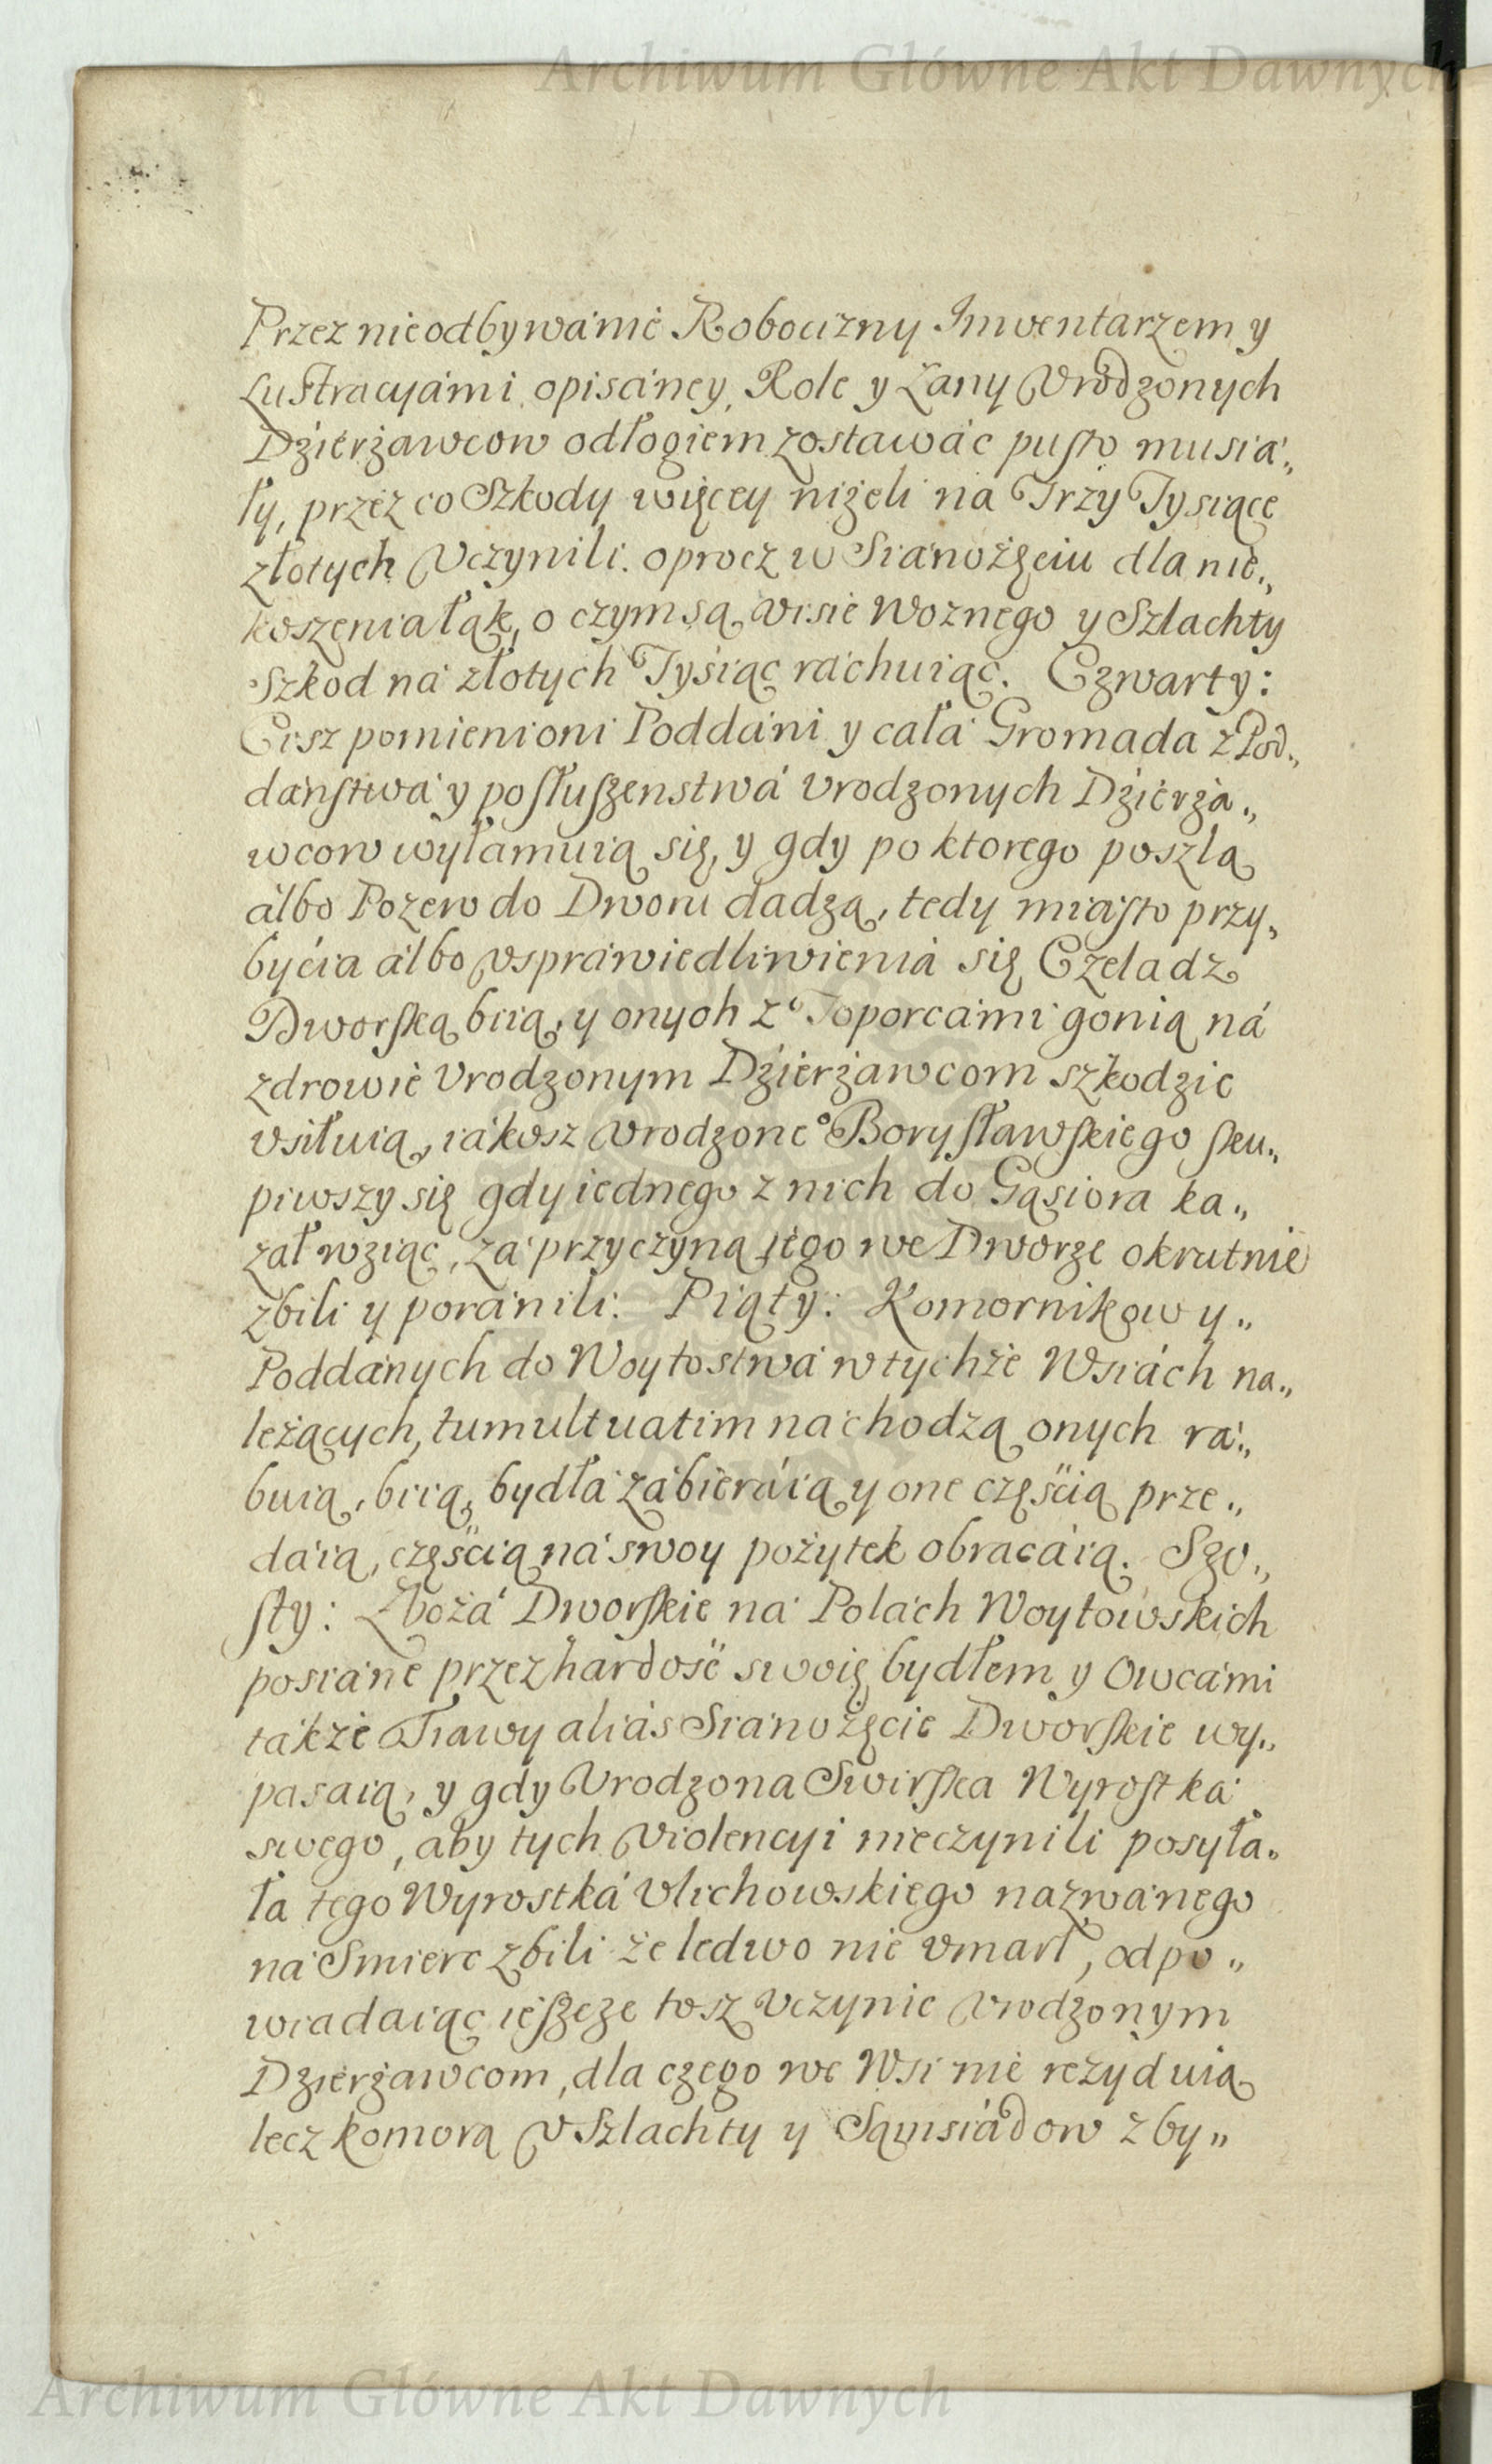 Archiwum Główne Akt Dawnych
Przez nieodbywánie Robocizny Inwentarzem y
Lustracyámi opisáney, Role y Łany Vrodzonych
Dzierżawcow odłogiem zostawáć pusto musiá„
ły, przez co Szkody więcey niżeli ná Trzy Tysiące
złotych Vczynili. oprocz w Siánożęciu dla nie„
koszenia łąk, o czym są visie Woznego y Szlachty
Szkod ná złotych Tysiąc ráchuiąc. Czwarty:
Cisz pomienioni Poddáni y cáła Gromada z Pod„
dáństwá y posłuszenstwá Vrodzonych Dzierżá„
wcow wyłamuią się, y gdy po ktorego poszlą
álbo Pozew do Dworu dadzą, tedy miásto przy„
byćia álbo vspráwiedliwieniá się Czeladz
Dworską biią, y onych z Toporcámi gonią ná
zdrowie Vrodzonym Dzierżawcom szkodzić
vsiłuią, iákosz Vrodzone° Borysławskiego sku„
piwszy się gdy iednego z nich do Gąsiora ka„
zał wziąc, zá przyczyną jego we Dworze okrutnie
zbili y poránili. Piąty: Komornikow y„
Poddánych do Woytostwá w tychże Wsiách ná„
leżących, tumultuatim náchodzą onych rá„
buią, biią, bydłá zábieráią y one częścią prze„
dáią, częścią ná swoy pożytek obracáią. Szo„
sty: Zbożá Dworskie ná Polách Woytowskich
posiáne przez hardość swoię bydłem y Owcámi
tákże Trawy aliás Siánożęcie Dworskie wy„
pasaią, y gdy Vrodzona Swirska Wyrostká
swego, aby tych Violencyi nieczynili posyłá„
ła tego Wyrostká Vlichowskiego názwánego
ná Smierc zbili że ledwo nie vmarł, odpo„
wiadaiąc ieszcze tosz Vczynic Vrodzonym
Dzierżawcom, dla czego we Wsi nie rezyduią
lecz komorą v Szlachty y Sąmsiádow zby„
Archiwum Główne Akt Dawnych